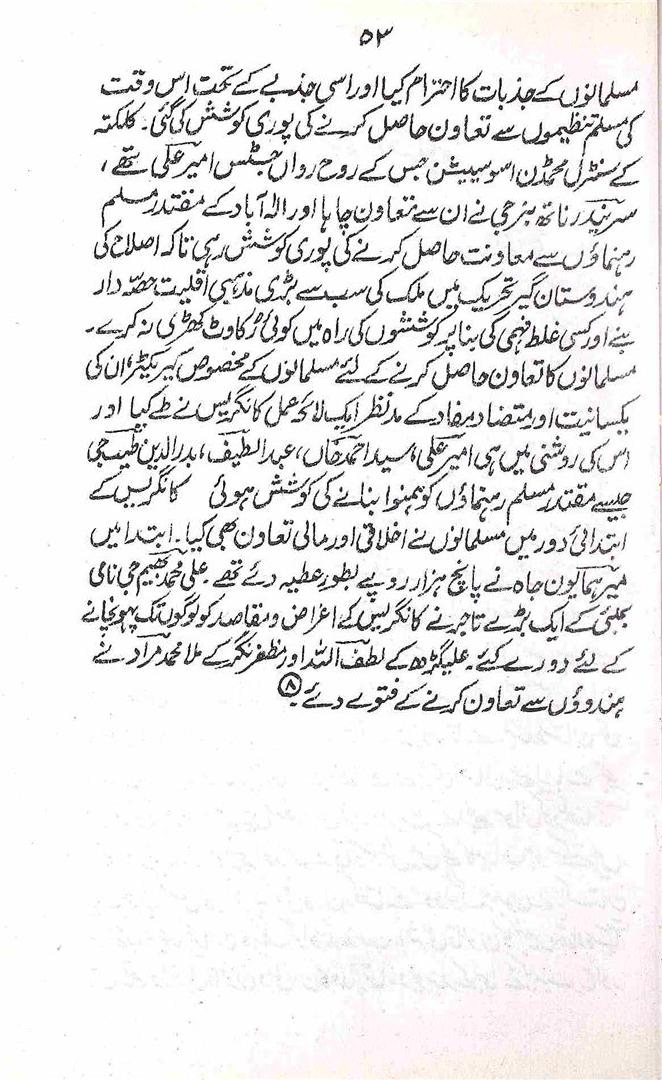 ۵۳
مسلمانوں کے جذبات کا احترام کیا اور اسی جذبے کے تحت اس وقت
کی مسلم تنظیموں سے تعاون حاصل کرنے کی پوری کوشش کی گئی۔ کلکتہ
کے سنٹرل محمڈن اسوسیشن جس کے روح رواں جسٹس امیر علی تھے،
سریندر ناتھ بنرجی نے ان سے تعاون چاہا اور الہ آباد کے مقتدر مسلم
رہنماؤں سے معاونت حاصل کرنے کی پوری کوشش رہی تاکہ اصلاح کی
ہندوستان گیر تحریک میں ملک کی سب سے بڑی مذہبی اقلیت حصہ دار
بنے اور کسی غلط فہمی کی بنا پر کوششوں کی راہ میں کوئی رکاوٹ کھڑی نہ کرے۔
مسلمانوں کا تعاون حاصل کرنے کے لئے مسلمانوں کے مخصوص کیریکٹر، ان کی
یکسانیت اور متضاد مفاد کے مد نظر ایک لائحہ عمل کانگریس نے طے کیا اور
اس کی روشنی میں ہی امیر علی، سید احمد خاں، عبد الطیف، بدر الدین طیب جی
جیسے مقتدر مسلم رہنماؤں کو ہمنوا بنانے کی کوشش ہوئی کانگریس کے
ابتدائی دور میں مسلمانوں نے اخلاقی اور مالی تعاون بھی کیا۔ ابتدا میں
میر ہمایون جاہ نے پانچ ہزار روپے بطور عطیہ دئے تھے۔ علی محمد بھیم جی نامی
بمبئی کے ایک بڑے تاجر نے کانگریس کے اغراض و مقاصد کو لوگوں تک پہونچانے
کے لئے دورے کئے۔ علیگڑھ کے لطف اللہ اور مظفر نگر کے ملا محمد مراد نے
ہندوؤں سے تعاون کرنے کے فتوے دئے۔ ⑧